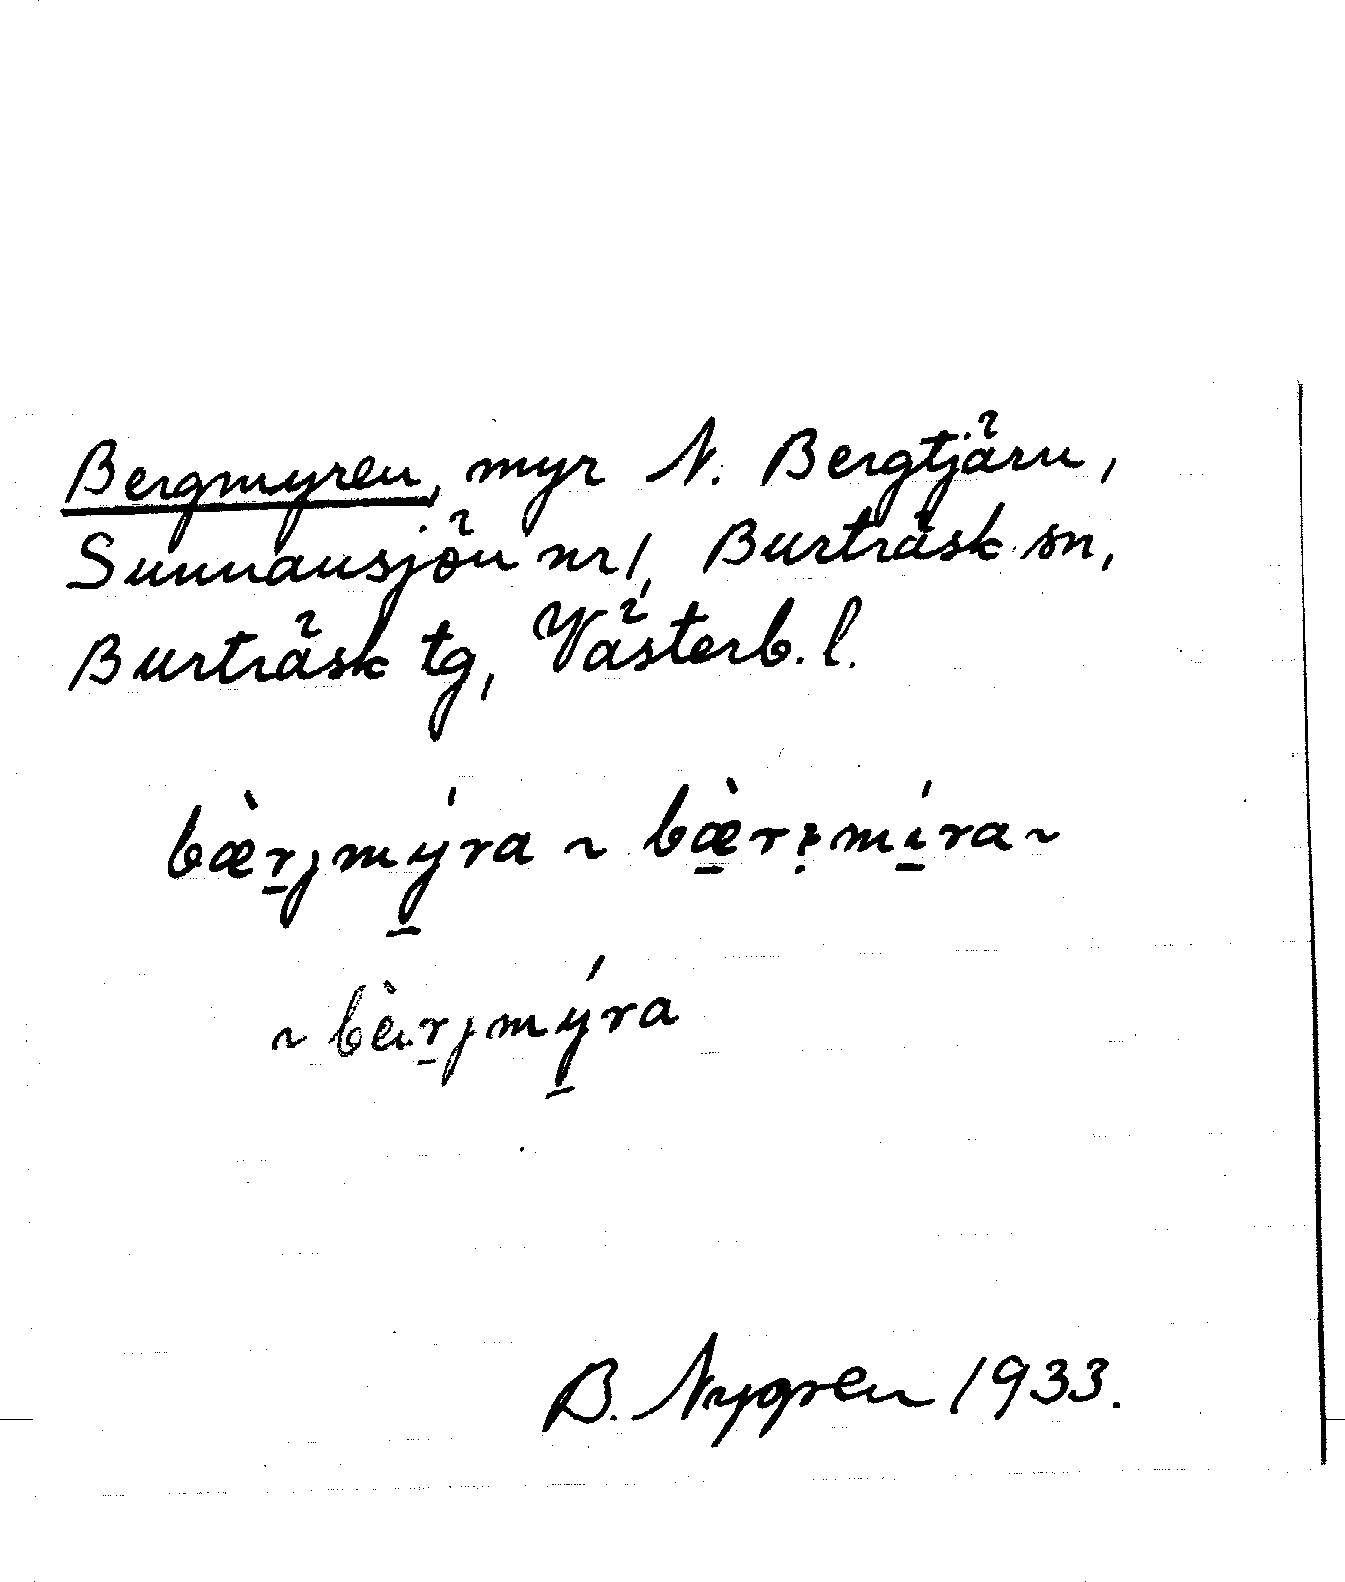 Bergmyren, myr N. Bergtjärn,
Sunnansjön nr 1, Burträsk sn,
Burträsk tg, Västerb. l.
bæ̀r̠jmý̠ra ~ bæ̠̀rᶎ̣mí̠ra ~
~ bèr̠jmý̠ra
B. Nygren 1933.